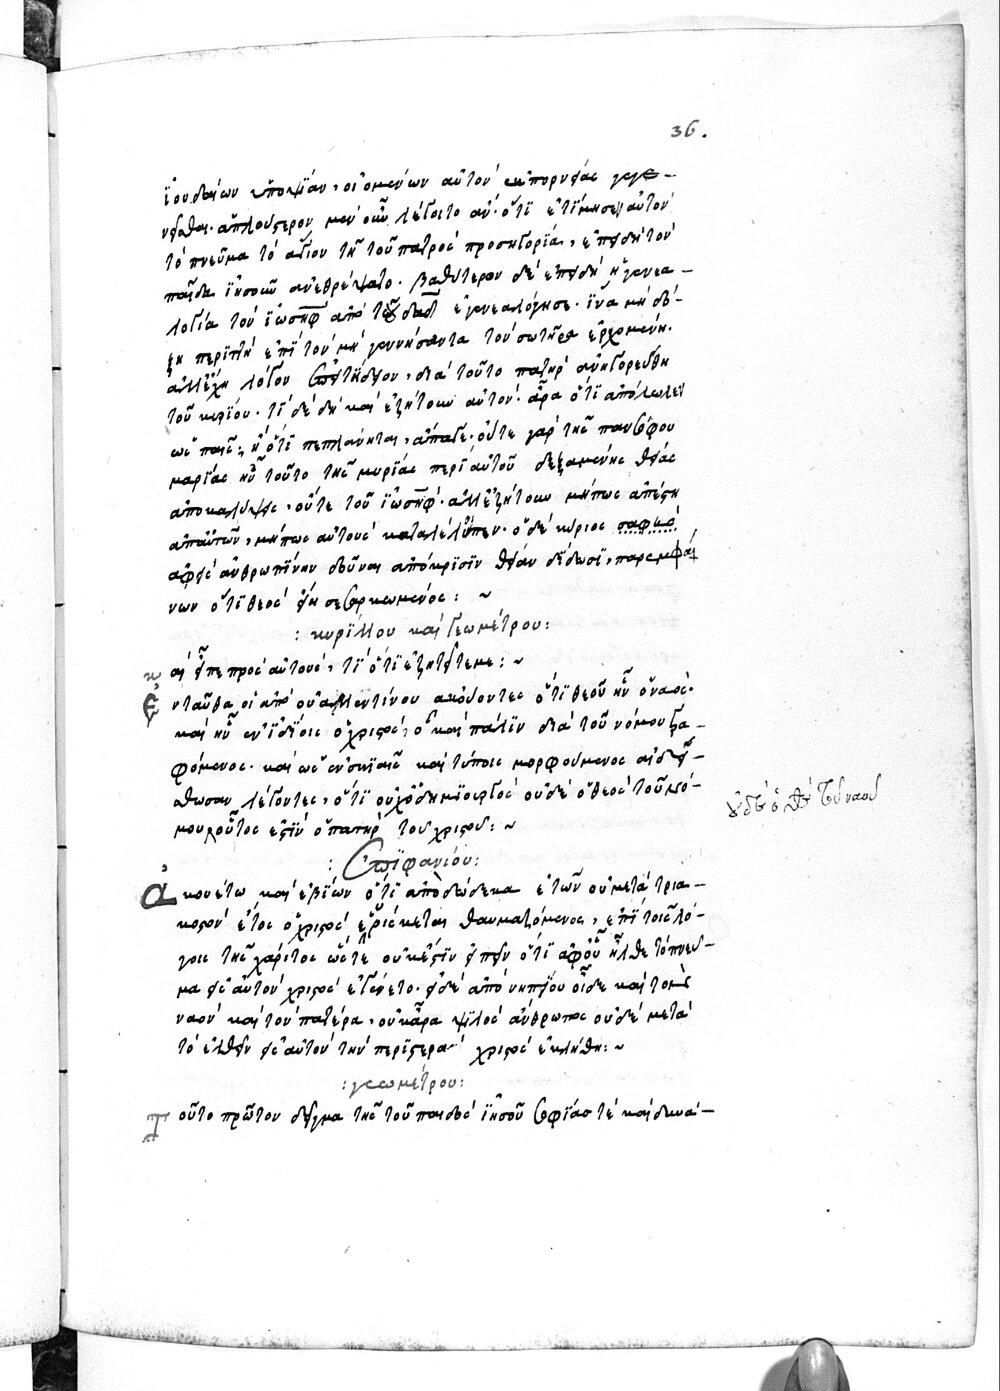 36.
ἰουδαίων ὑποψίαν, οἰομένων αὐτὸν ἐκ πορνείας γεγε-
νῆσθαι. ἁπλούστερον μὲν οὖν λέγοιτο ἂν. ὅτι ἐτίμησεν αὐτὸν
τὸ πνεῦμα τὸ ἅγιον τῇ τοῦ πατρὸς προσηγορίᾳ, ἐπειδὴ τὸν
παῖδα ἰησοῦν ἀνεθρέψατο. βαθύτερον δὲ ἐπειδὴ ἡ γενεα-
λογία τὸν ἰωσὴφ ἀπὸ τοῦ δαδ ἐγενεαλόγησε. ἵνα μὴ δό-
ξῃ περιττὴ ἐπὶ τὸν μὴ γεννήσαντα τὸν σωτῆρα ἐρχομένη.
ἀλλ' ἔχῃ λόγον ἐπιτήδειον, διὰ τοῦτο πατὴρ ἀνηγορεύθη
τοῦ κυρίου. τί δὲ δὴ καὶ ἐζήτουν αὐτὸν. ἆρα ὅτι ἀπόλωλεν
ὡς παῖς; ἢ ὅτι πεπλάνηται, ἄπαγε. οὔτε γὰρ τῆς πανσόφου
μαρίας ἦν τοῦτο τῆς μυρίας περὶ αὐτοῦ δεξαμένης θείας
ἀποκαλύψεις. οὔτε τοῦ ἰωσὴφ. ἀλλ' ἐζήτουν μήπως ἀπέστη
ἀπ' αὐτῶν, μήπως αὐτοὺς καταλέλοιπεν. ὁ δὲ κύριος σαφῶς
ἀφεὶς ἀνθρωπίνην δοῦναι ἀπόκρισιν θείαν δίδωσι, παρεμφαί
νων ὅτι θεὸς ἦν σεσαρκωμένος: ~
: κυρίλλου καὶ γεωμέτρου:
καὶ εἶπε πρὸς αὐτοὺς, τί ὅτι ἐζητεῖτέ με: ~
Ἐνταῦθα οἱ ἀπὸ οὐαλλεντίνου ἀκούοντες ὅτι θεοῦ ἦν ὁ ναός.
καὶ ἦν ἐν τοῖς ἰδίοις ὁ χριστὸς, ὁ καὶ πάλιν διὰ τοῦ νόμου γρα-
φόμενος. καὶ ὡς ἐν σκιαῖς καὶ τύποις μορφούμενος αἰδείσ-
θωσαν λέγοντες, ὅτι οὐχ ὁ δημιουργὸς οὐδὲ ὁ θεὸς τοῦ νό-
μου οὗτος ἐστὶν ὁ πατὴρ τοῦ χριστοῦ: ~
οὐδὲ ὁ θς τοῦ ναοῦ
: Ἐπιφανίου:
Ἀκουέτω καὶ ἐβίων ὅτι ἀπὸ δώδεκα ἐτῶν οὐ μετὰ τρια-
κοστὸν ἔτος ὁ χριστὸς εὑρίσκεται θαυμαζόμενος, ἐπὶ τοῖς λό-
γοις τῆς χάριτος ὥστε οὐκ ἔστιν εἰπεῖν ὅτι ἀφ' οὗ ἦλθε τὸ πνεῦ-
μα εἰς αὐτὸν χριστὸς ἐγένετο. εἰ δὲ ἀπὸ νηπίου οἶδε καὶ τὸν
ναὸν καὶ τὸν πατέρα, οὐκ ἄρα ψιλὸς ἄνθρωπος οὐδὲ μετὰ
τὸ ἐλθεῖν εἰς αὐτὸν τὴν περιστερὰν χριστὸς ἐκλήθη: ~
: γεωμέτρου:
Τοῦτο πρῶτον δεῖγμα τῆς τοῦ παιδὸς ἰησοῦ σοφίας τὲ καὶ δυνά-